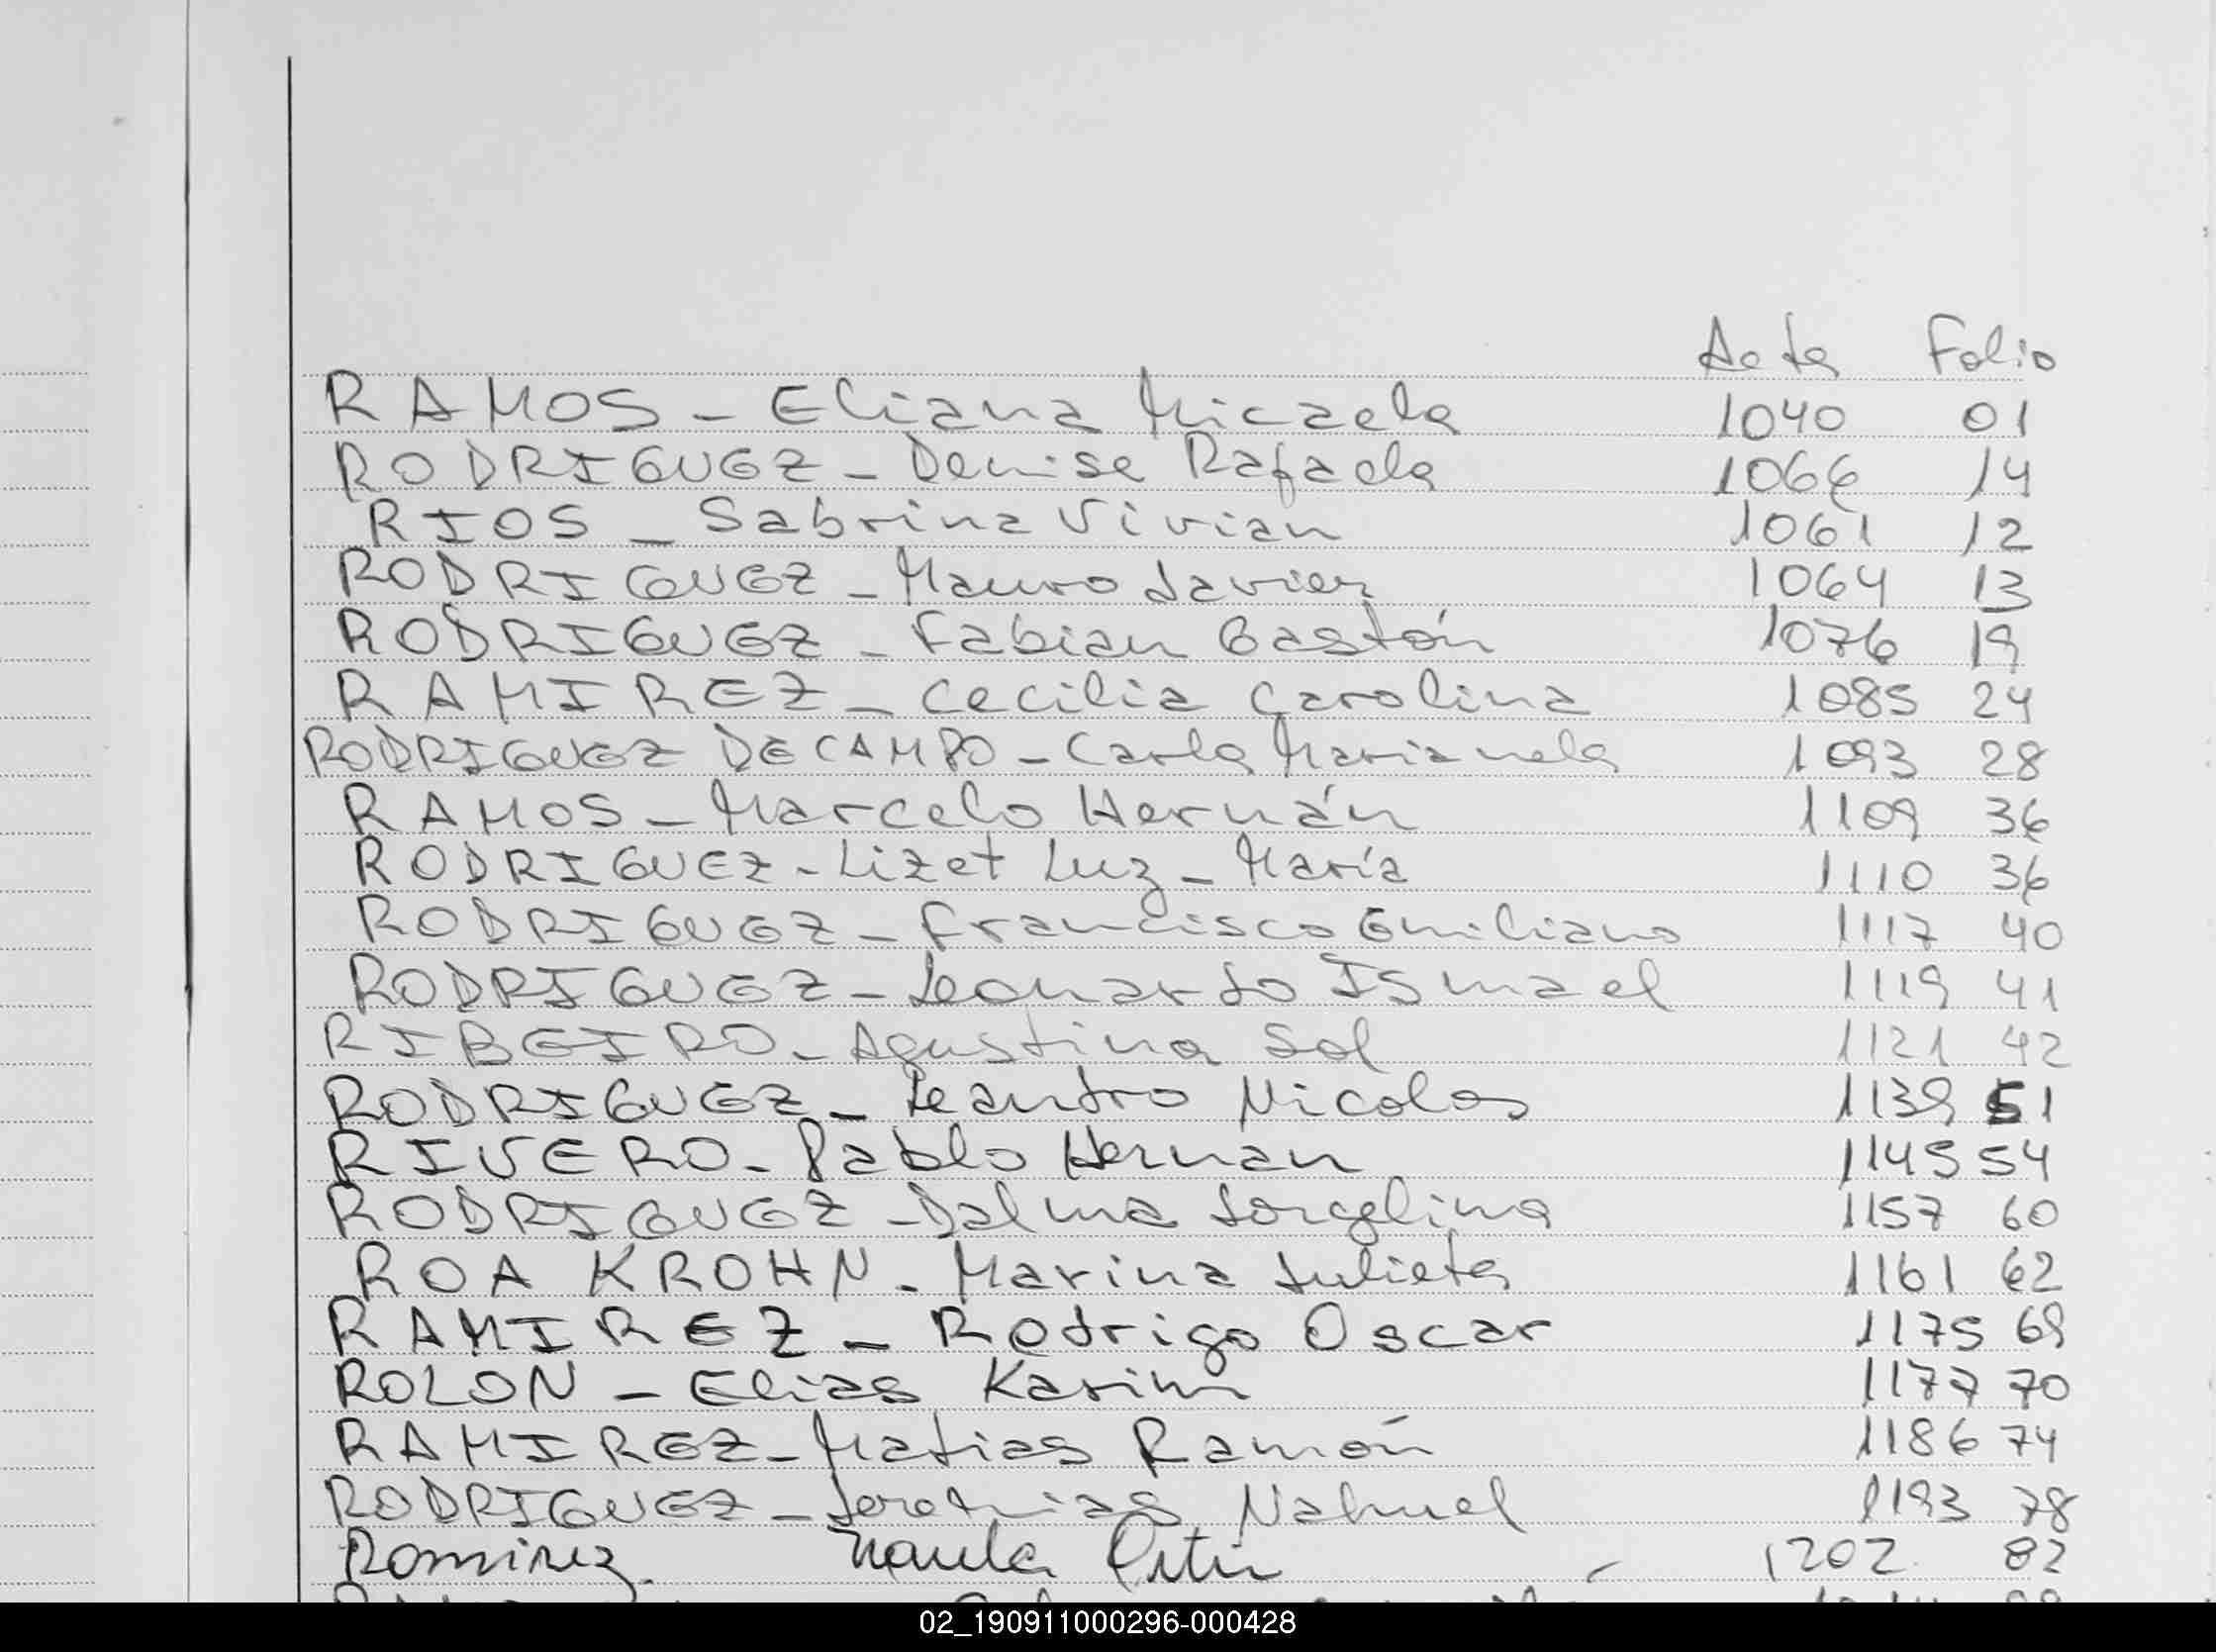 Acta Folio
RAMOS - Eliana Micaela 1040 01
RODRIGUEZ - Denise Rafaela 1066 14
RIOS - Sabrina Vivian 1061 12
RODRIGUEZ - Mauro Javier 1064 13
RODRIGUEZ - Fabian Gastón 1076 19
RAMIREZ - Cecilia Carolina 1085 24
RODRIGUEZ DECAMPO - Carla Marianela 1093 28
RAMOS - Marcelo Hernán 1109 36
RODRIGUEZ - Lizet Luz - María 1110 36
RODRIGUEZ - Francisco Emiliano 1117 40
RODRIGUEZ - Leonardo Ismael 1119 41
RIBEIRO - Agustina Sol 1121 42
RODRIGUEZ - Leandro Nicolas 1139 51
RIVERO - Pablo Hernan 1145 54
RODRIGUEZ - Dalma Jorgelina 1157 60
ROA KROHN - Marina Julieta 1161 62
RAMIREZ - Rodrigo Oscar 1175 69
ROLON - Elias Karim 1177 70
RAMIREZ - Matias Ramón 1186 74
RODRIGUEZ - Jeremias Nahuel 1193 78
Ramirez 1202 82
02_190911000296-000428